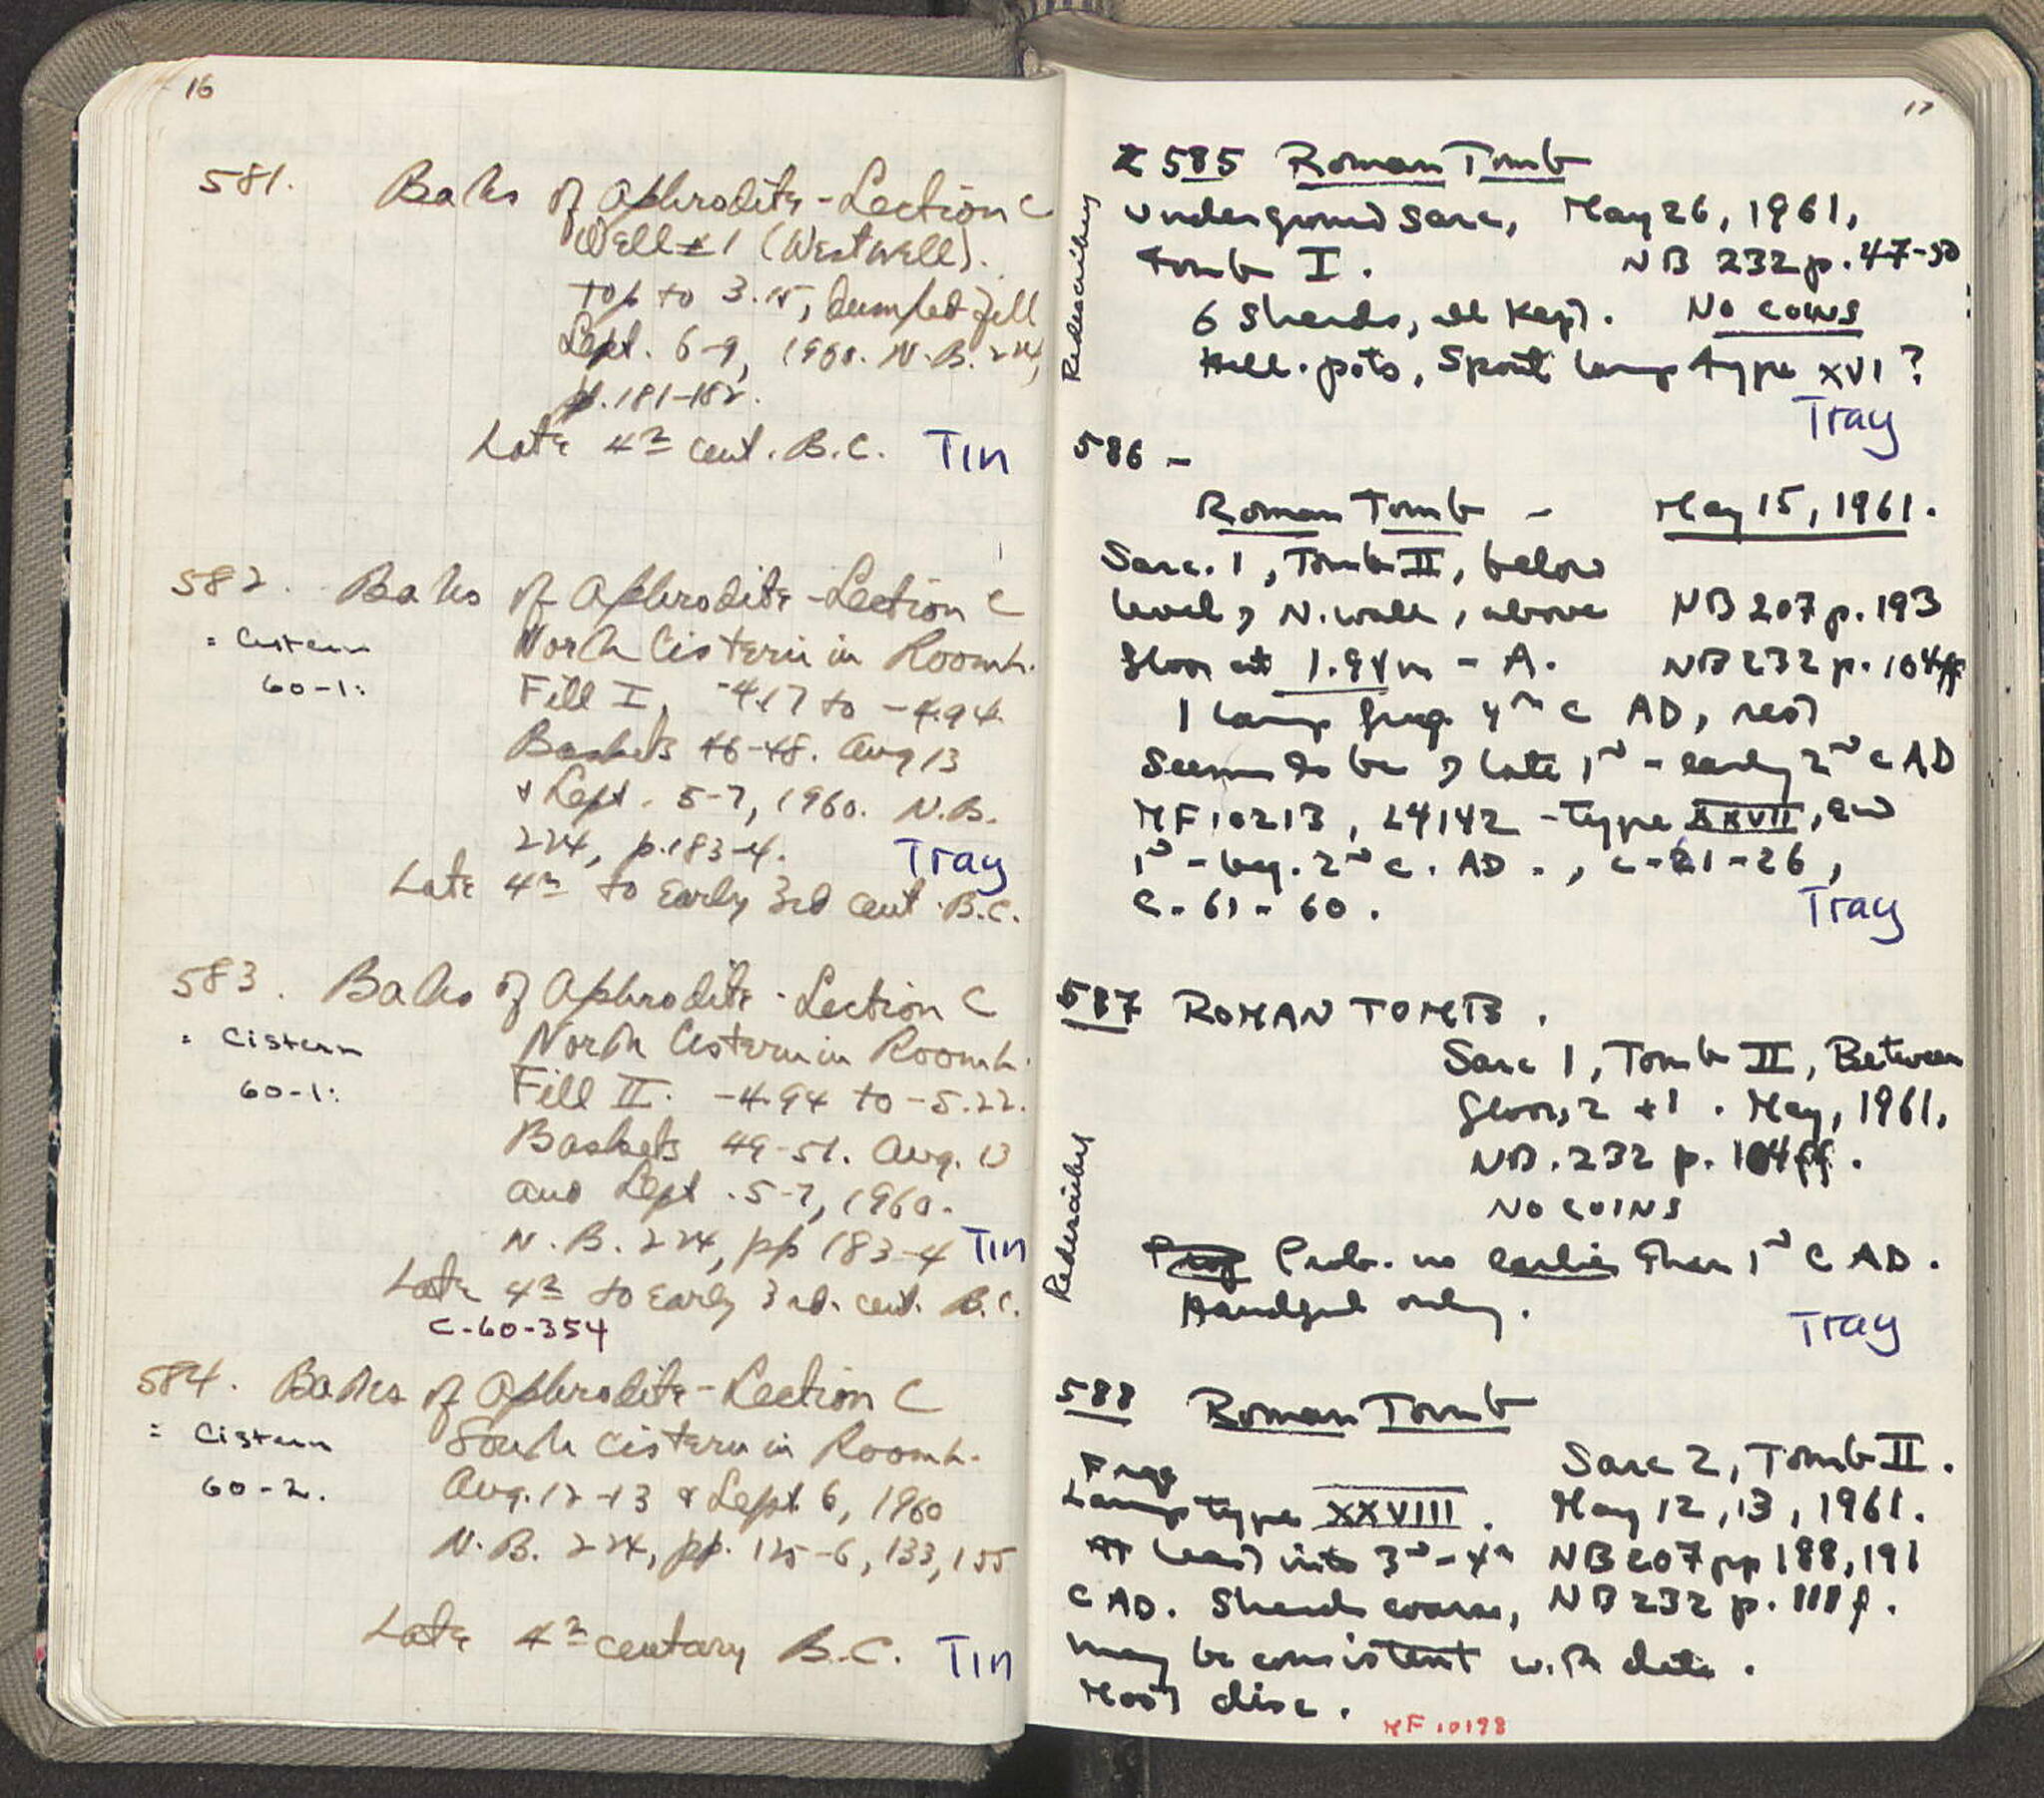 16
581. Baths of Aphrodite - Section C
Well #1 (West well).
Top to 3.15, dumped fill
Sept. 6-9, 1960. N.B. 224,
p. 181-182.
Late 4th cent. B.C. Tin
582. Baths of Aphrodite - Section C
= Cistern North Cistern in Room h.
60-1: Fill I, -4.17 to -4.94.
Baskets 46-48. Aug 13
& Sept. 5-7, 1960. N.B.
224, p. 183-4. Tray
Late 4th to Early 3rd cent. B.C.
583. Baths of Aphrodite - Section C
= Cistern North Cistern in Room h.
60-1: Fill II. -4.94 to -5.22.
Baskets 49-51. Aug. 13
and Sept. 5-7, 1960.
N.B. 224, pp 183-4 Tin
Late 4th to Early 3rd. cent. B.C.
C-60-354
584. Baths of Aphrodite - Section C
= Cistern South Cistern in Room h.
60-2. Aug. 12-13 & Sept 6, 1960
N.B. 224, pp. 125-6, 133, 155
Late 4th century B.C. Tin
17
585 Roman Tomb
Underground Sarc, May 26, 1961,
Tomb I. NB 232 p. 47-50
6 sherds, all kept. No coins
Hell. pots, Spout lamp type XVI?
Tray
586 -
Roman Tomb - May 15, 1961.
Sarc. 1, Tomb II, below
level of N. wall, above NB 207 p. 193
floor at 1.94m - A. NB 232 p. 104ff
1 lamp frag 4th c AD, rest
Seems to be of late 1st - early 2nd c AD
MF 10213, L4142 - type XXVII, end
1st - beg. 2nd c. AD., C-61-26,
C-61-60. Tray
587 ROMAN TOMB.
Sarc 1, Tomb II, Between
floors 2 + 1. May, 1961,
NB. 232 p. 104ff.
NO COINS
Prob. no earlier than 1st C AD.
Handful only.
Tray
588 Roman Tomb
Sarc 2, Tomb II.
Frag
Lamp type XXVIII. May 12, 13, 1961.
At least into 3rd-4th NB 207 pp 188, 191
C AD. Sherds coarse, NB 232 p. 111f.
may be consistent with date.
Most disc.
MF 10198